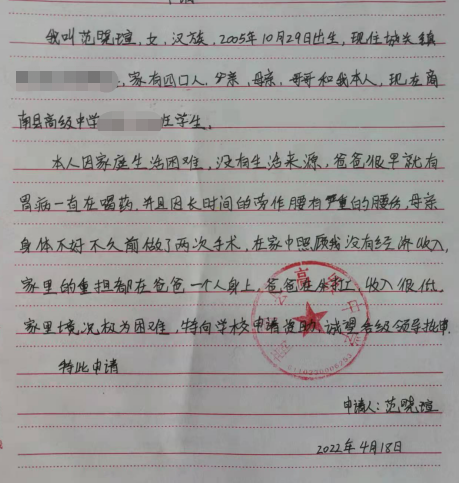 申请
我叫范晓瑄,女,汉族,2005年10月29日出生,现住城关镇
,家有四口人,父亲,母亲,哥哥和我本人,现在商
南县高级中学 在学生。
本人因家庭生活困难,没有生活来源,爸爸很早就有
胃病一直在喝药,并且因长时间的劳作腰有严重的腰伤,母亲
身体不好不久前做了两次手术,在家中照顾我没有经济收入,
家里的重担都在爸爸一个人身上,爸爸在外打工,收入很低,
家里境况极为困难,特向学校申请资助,诚望各级领导批准
特此申请
申请人:范晓瑄
2022年4月18日